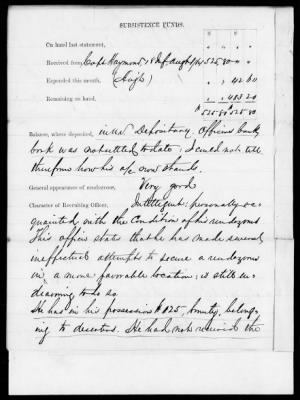 SUBSISTENCE FUNDS.
On hand last statement,
Received from Capt Haymond 18 Inf. Aug 1/64 525 80
Expended this month, (Aug't) 42 60
Remaining on hand, 483 20
$ 525 80 $ 525 80
Balance, where deposited, in U.S. Depositary. Officers bank
book was not settled to date, I could not tell
therefrom how his a/c now stands.
General appearance of rendezvous, Very good
Character of Recruiting Officer, Intelligent: personally ac-
quainted with the condition of his rendezvous
This officer states that he has made several
ineffectual attempts to secure a rendezvous
in a more favorable location; is still en-
deavoring to do so
He has in his possession $125, bounty, belong-
ing to deserters. He had not received the